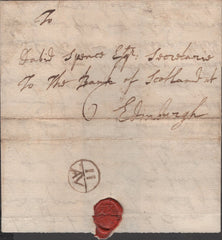 To
David Spence Esqr: Secretarie
To The Bank of Scotland at
Edinburgh
11
AV